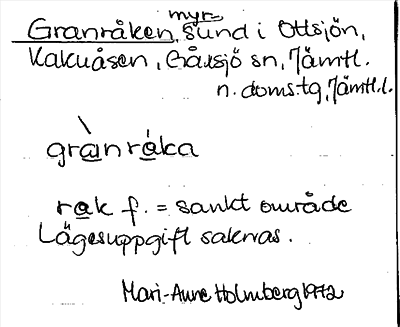 Granråken, myr, sund i Ottsjön,
Kakuåsen, Gåxsjö sn, Jämtl.
n. doms.tg, Jämtl.l.
grànråka
rak f. = sankt område
Lägesuppgift saknas.
Mari-Anne Holmberg 1972